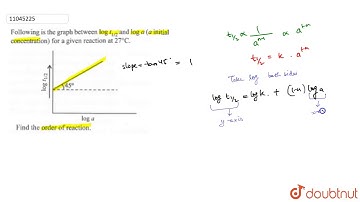 11045225
Following is the graph between log t1/2 and log a (a initial
concentration) for a given reaction at 27°C.
log t1/2
45°
log a
Find the order of reaction.
slope = tan 45° = 1
t1/2 ∝ 1/a^n-1 ∝ a^1-n
t1/2 = k · a^1-n
Take log both sides
log t1/2 = log k + (1-n) log a
y-axis
doubtnut